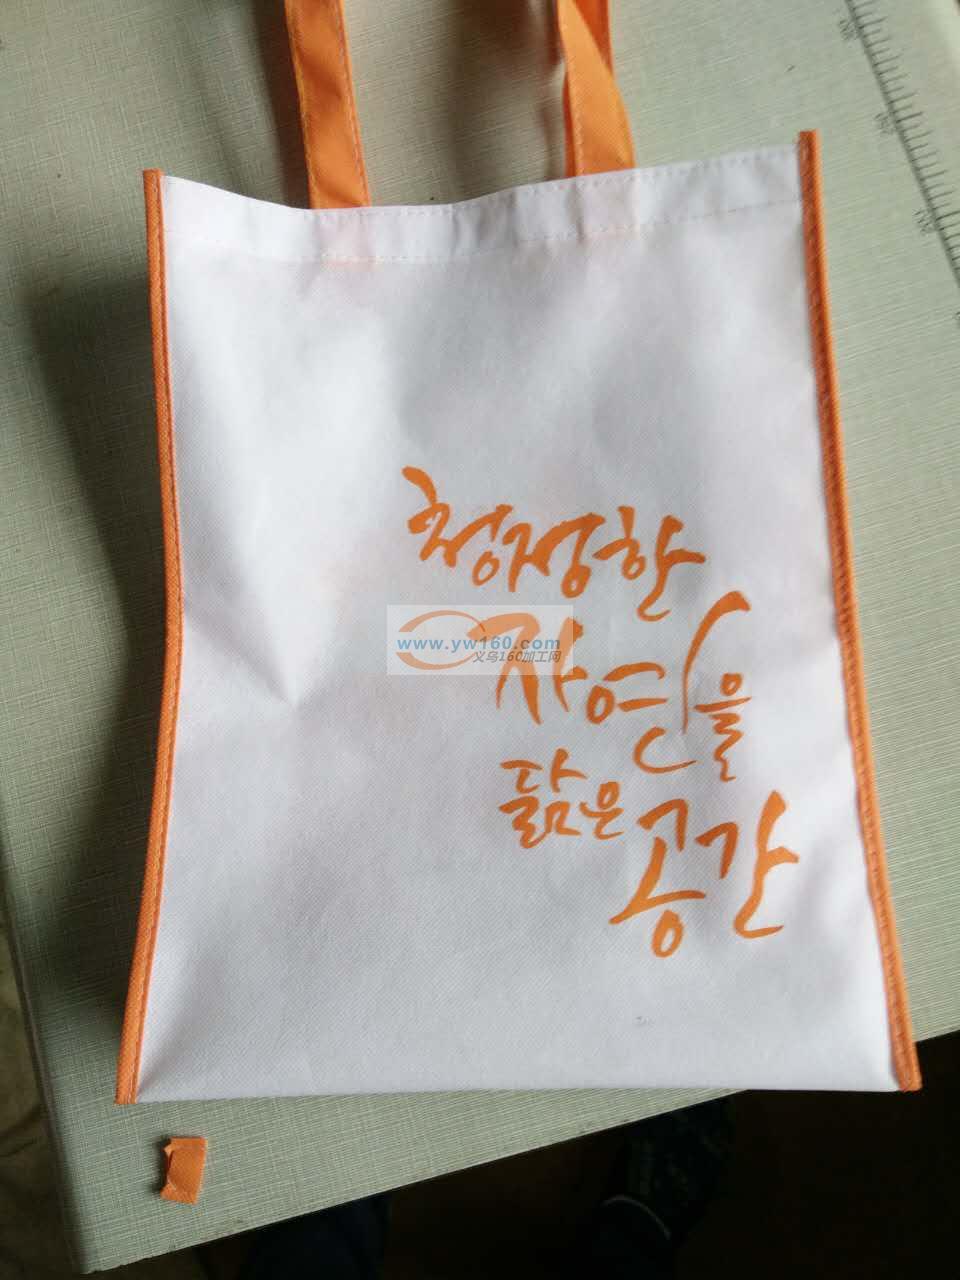 청정한
자연을
닮은
공간
www.yw160.com
义乌160加工网